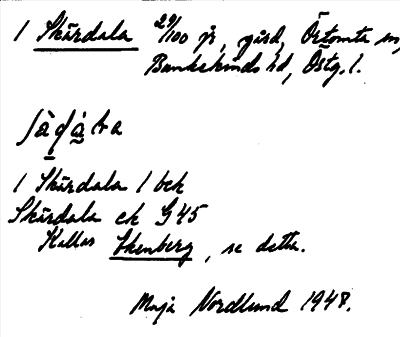 1 Skärdala 29/100 jr, gård, Örtomta sn,
Bankekinds hd, Östg. l.
1 Skärdala 1 bek
Skärdala ek G45
Kallas Ekenberg, se detta.
Maja Nordlund 1948.